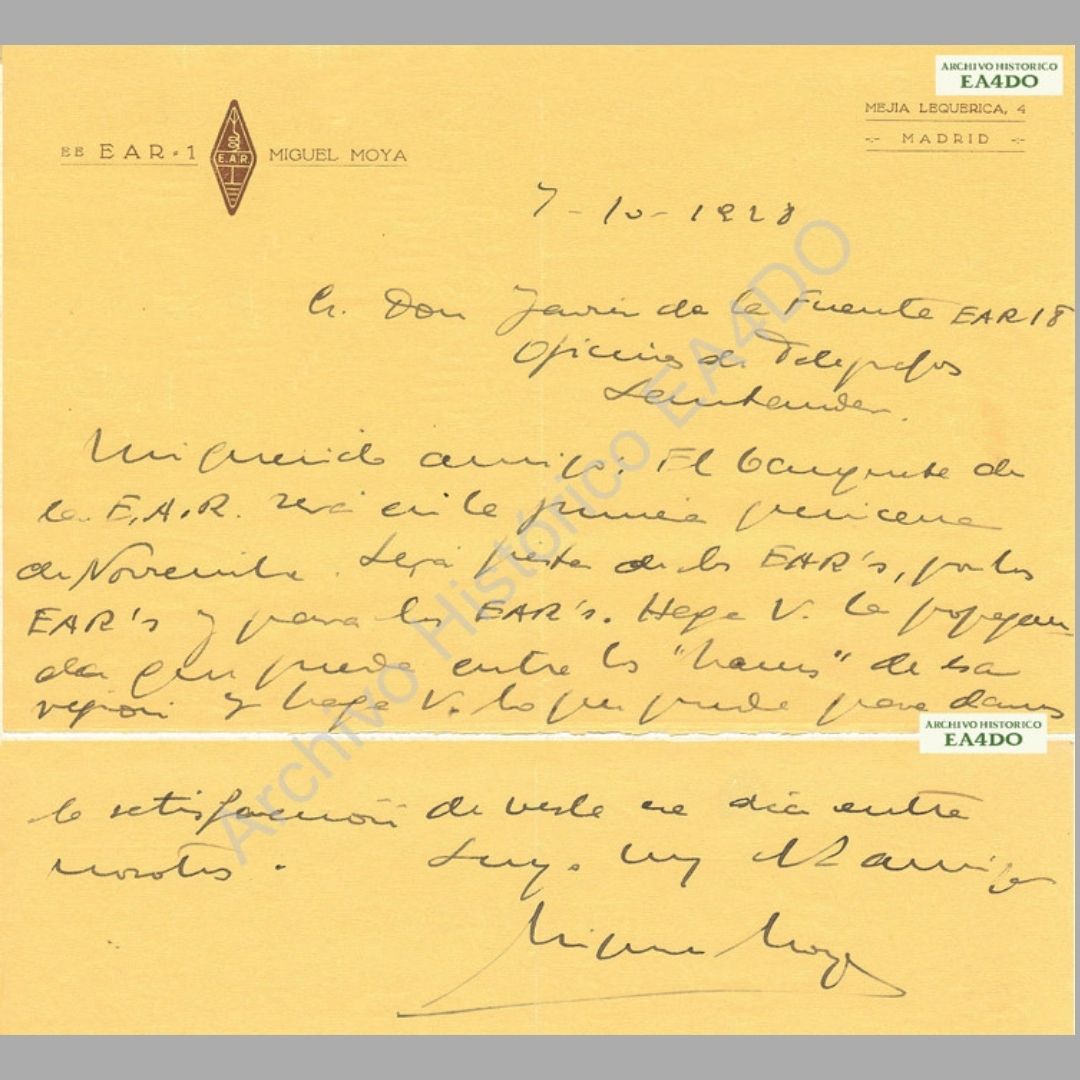 ARCHIVO HISTORICO
EA4DO
MEJIA LEQUERICA, 4
MADRID
EB EAR-1 E.A.R. MIGUEL MOYA
7-10-1928
Sr. Don Javier de la Fuente EAR18
Oficina de Telégrafos
Santander.
Mi querido amigo: El banquete de
la E.A.R. será en la primera quincena
de Noviembre. Será fiesta de los EAR's, por los
EAR's y para los EAR's. Haga V. la propagan
da que pueda entre los "hams" de esa
región y haga V. lo que pueda para darnos
ARCHIVO HISTORICO
EA4DO
la satisfacción de verle ese día entre
nosotros. Suyo. buen amigo
Miguel Moya
Archivo Histórico EA4DO